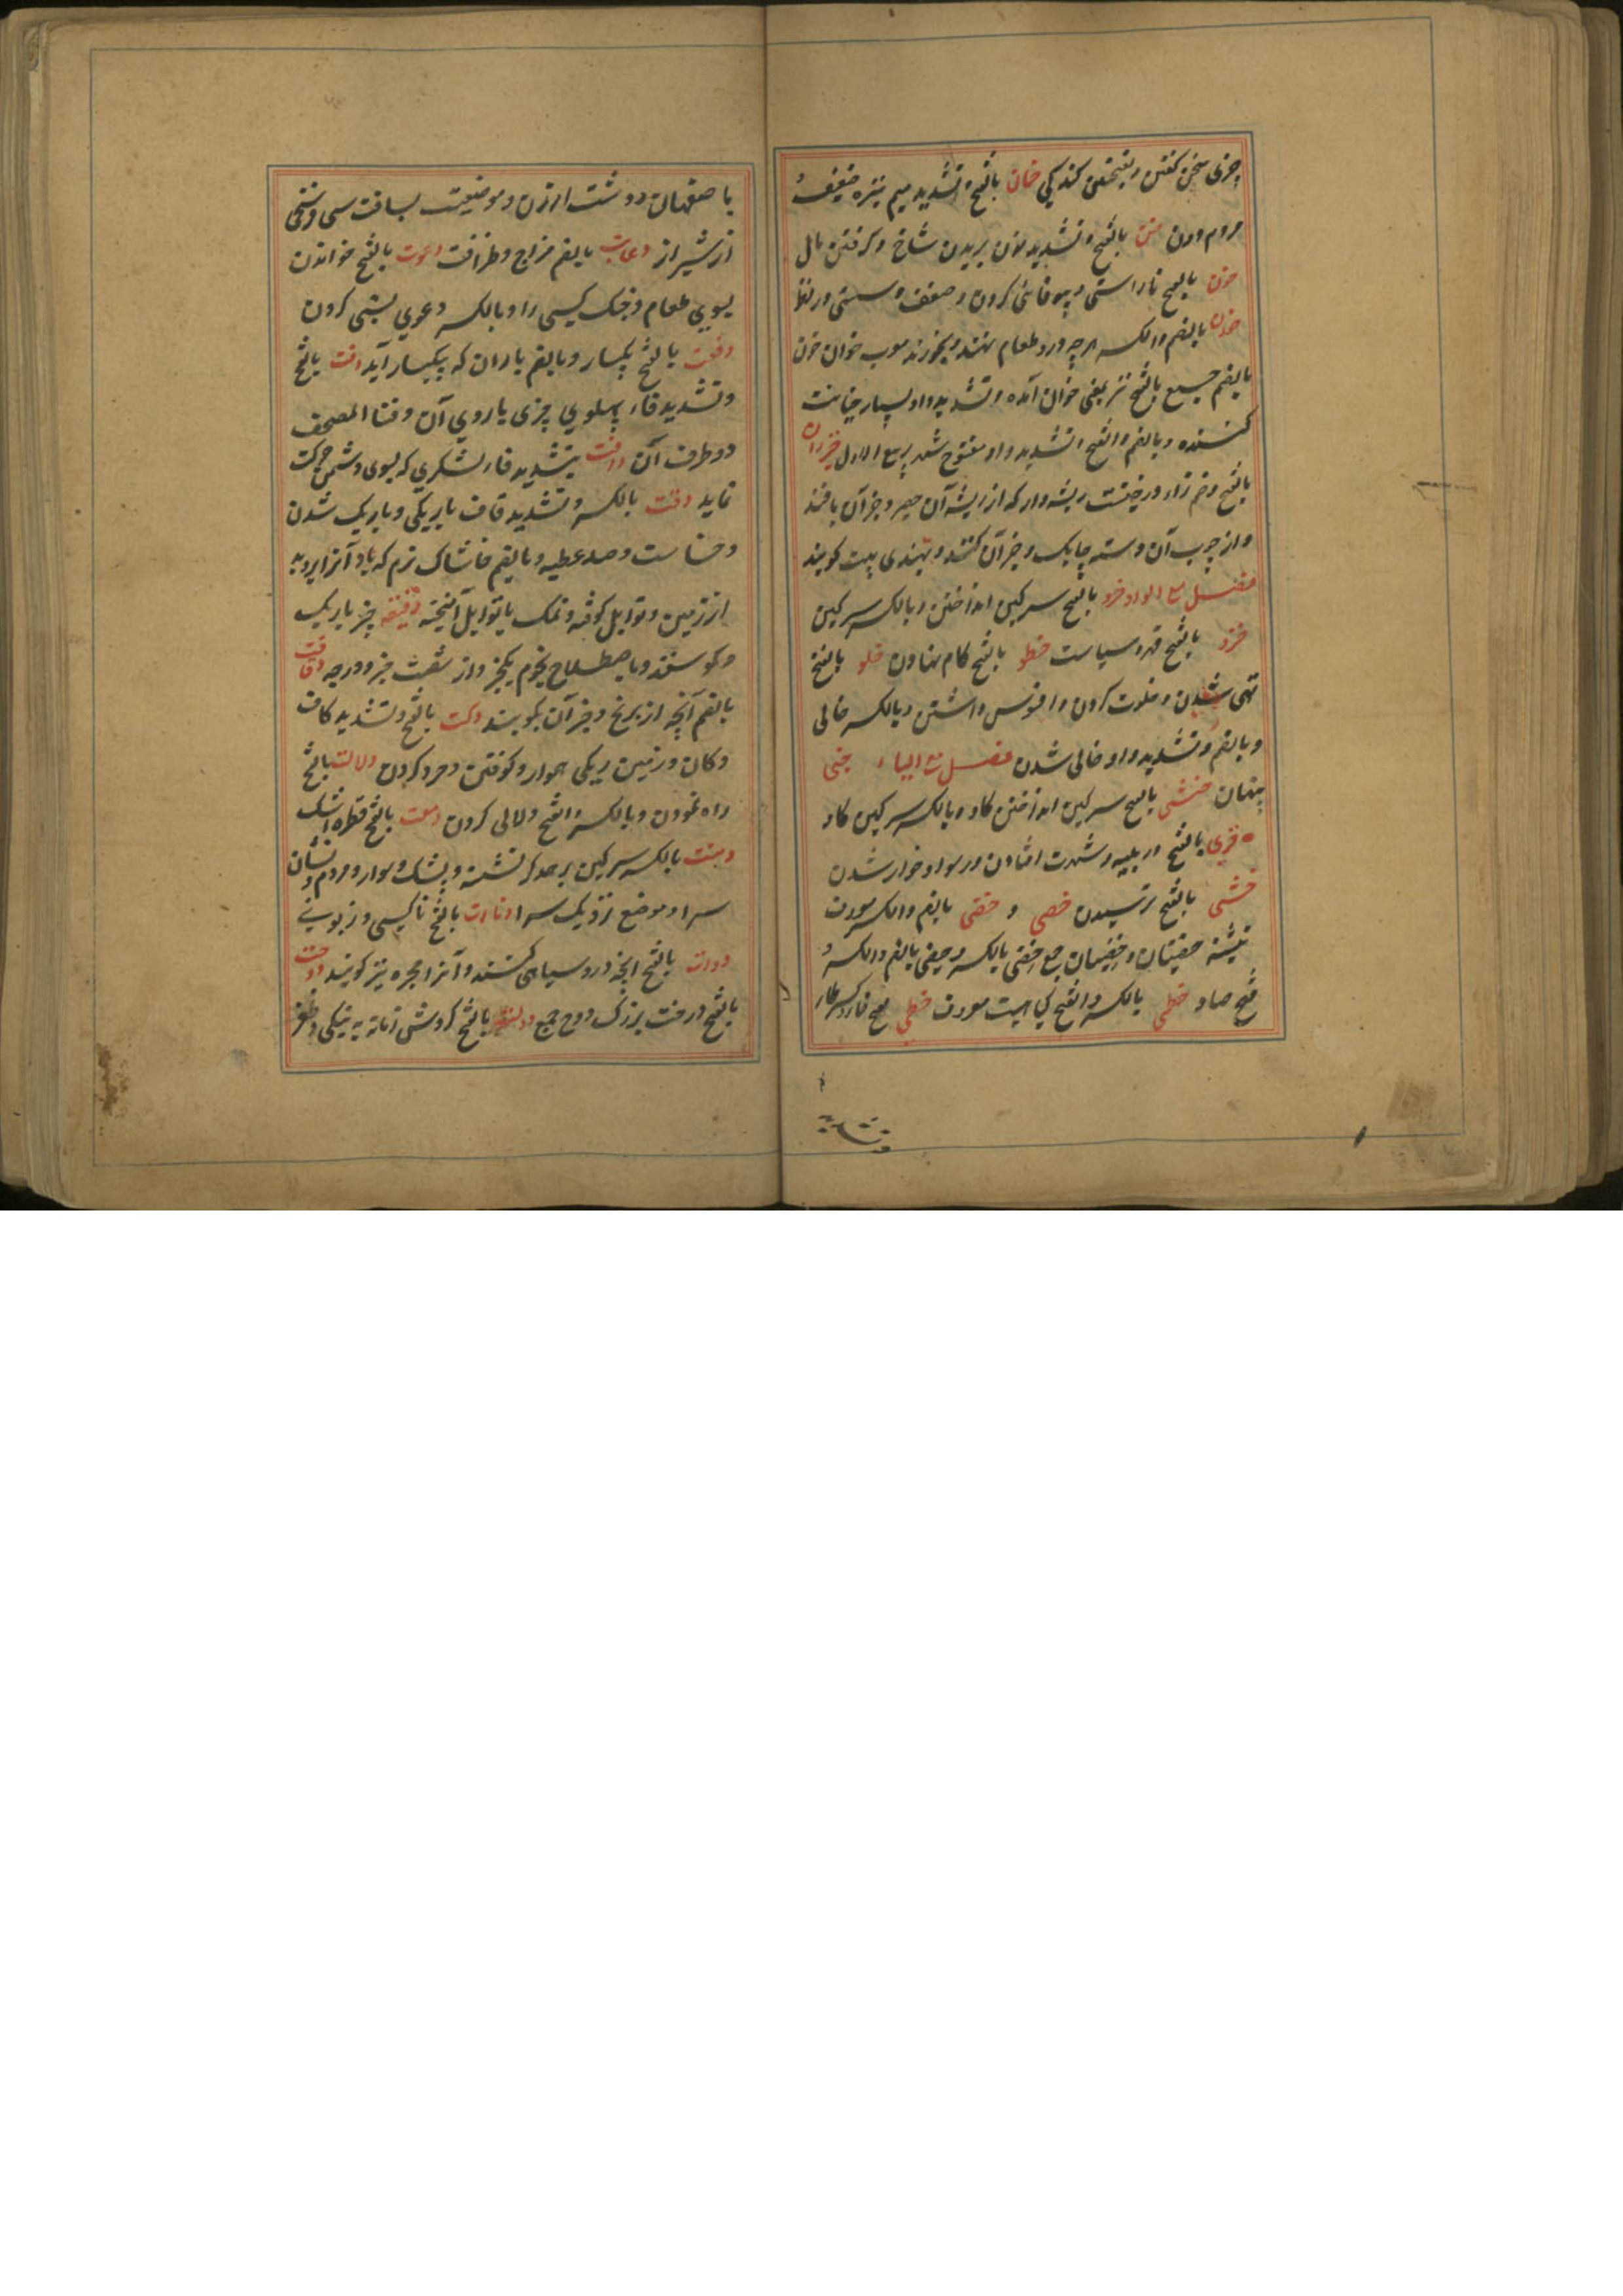 چیزی سخن گفتن و بینی کند کی خان بالفتح و تشدید میم نیزه ضعیف و
مردم دون خن بالفتح و تشدید نون بریدن شاخ و گرفتن مال
خون بالفتح ناراستی و بیوفائی کردن و ضعف و سستی در نظر
خوان بالضم والکسر هرچه درو طعام نهند و بخورند معرب خوان خون
بالضم جمیع بالفتح نیز بمعنی خوان آمده و تشدید واو بسیار خیانت
کننده و بالضم والفتح و تشدید واو مفتوح شهر ربیع الاول خیزران
بالفتح و ضم زاء درختیست ریشه دار که از ریشه آن حصیر و جز آن بافند
و از چوب آن دسته چابک و جز آن کنند و بهندی بیت گویند
فصل مع الواو خرو بالفتح سرگین انداختن و بالکسر سرگین
خزو بالفتح قهر و سیاست خطو بالفتح گام نهادن خلو بالفتح
تهی شدن و خلوت کردن و افسوس داشتن و بالکسر خالی
و بالضم و تشدید واو خالی شدن فصل مع الیاء خبی
پنهان خثی بالفتح سرگین انداختن گاو و بالکسر سرگین گاو
خزی بالفتح در بلیه و شهرت افتادن و رسوا و خوار شدن
خشی بالفتح ترسیدن خصی و خصی بالضم والکسر
تثنیه خصیتان و خصیان جمع خصی بالکسر و خصی بالضم والکسر و
فتح صاد خطمی بالکسر والفتح گیاهیست معروف خطی
باصفهان و دشت ارزن و موضعیست بمسافت سی فرسخی
از شیراز دعابت بالضم مزاح و ظرافت دعوت بالفتح خواندن
بسوی طعام و جنگ کسی را و بالکسر دعوی بستی کردن
دفعت بالفتح یکبار و بالضم باران که بیکبار آید دفت بالفتح
و تشدید فاء پهلوی چیزی یا روی آن و دفتا المصحف
دو طرف آن دافت بتشدید فاء لشکری که بسوی دشمن حرکت
نماید دقت بالکسر و تشدید قاف باریکی و باریک شدن
و خساست و صد عطیه و بالضم خاشاک نرم که باد آنرا بروبد
از زمین و توابل کوفته و نمک با توابل آمیخته دقیقه چیز باریک
و گوسفند و باصطلاح نجوم یکجز و از شصت جزو درجه دقاقت
بالضم آنچه از برنج و جز آن بکوبند دکت بالفتح و تشدید کاف
دکان و زمین ریگی هموار و کوفتن و خرد کردن دلالت بالفتح
راه نمودن و بالکسر والفتح دلالی کردن دمعت بالفتح قطره اشک
دمنت بالکسر سرگین بر همدگر نشسته و پشک و موار و مردم و نشان
سرا و موضع نزدیک سرا دنائت بالفتح ناکسی و زبونی
دوات بالفتح آنچه درو سیاهی کنند و آنرا مجره نیز گویند دوحت
بالفتح درخت بزرگ دوح جمع دولت بالفتح گردش زمانه به نیکی و ظفر